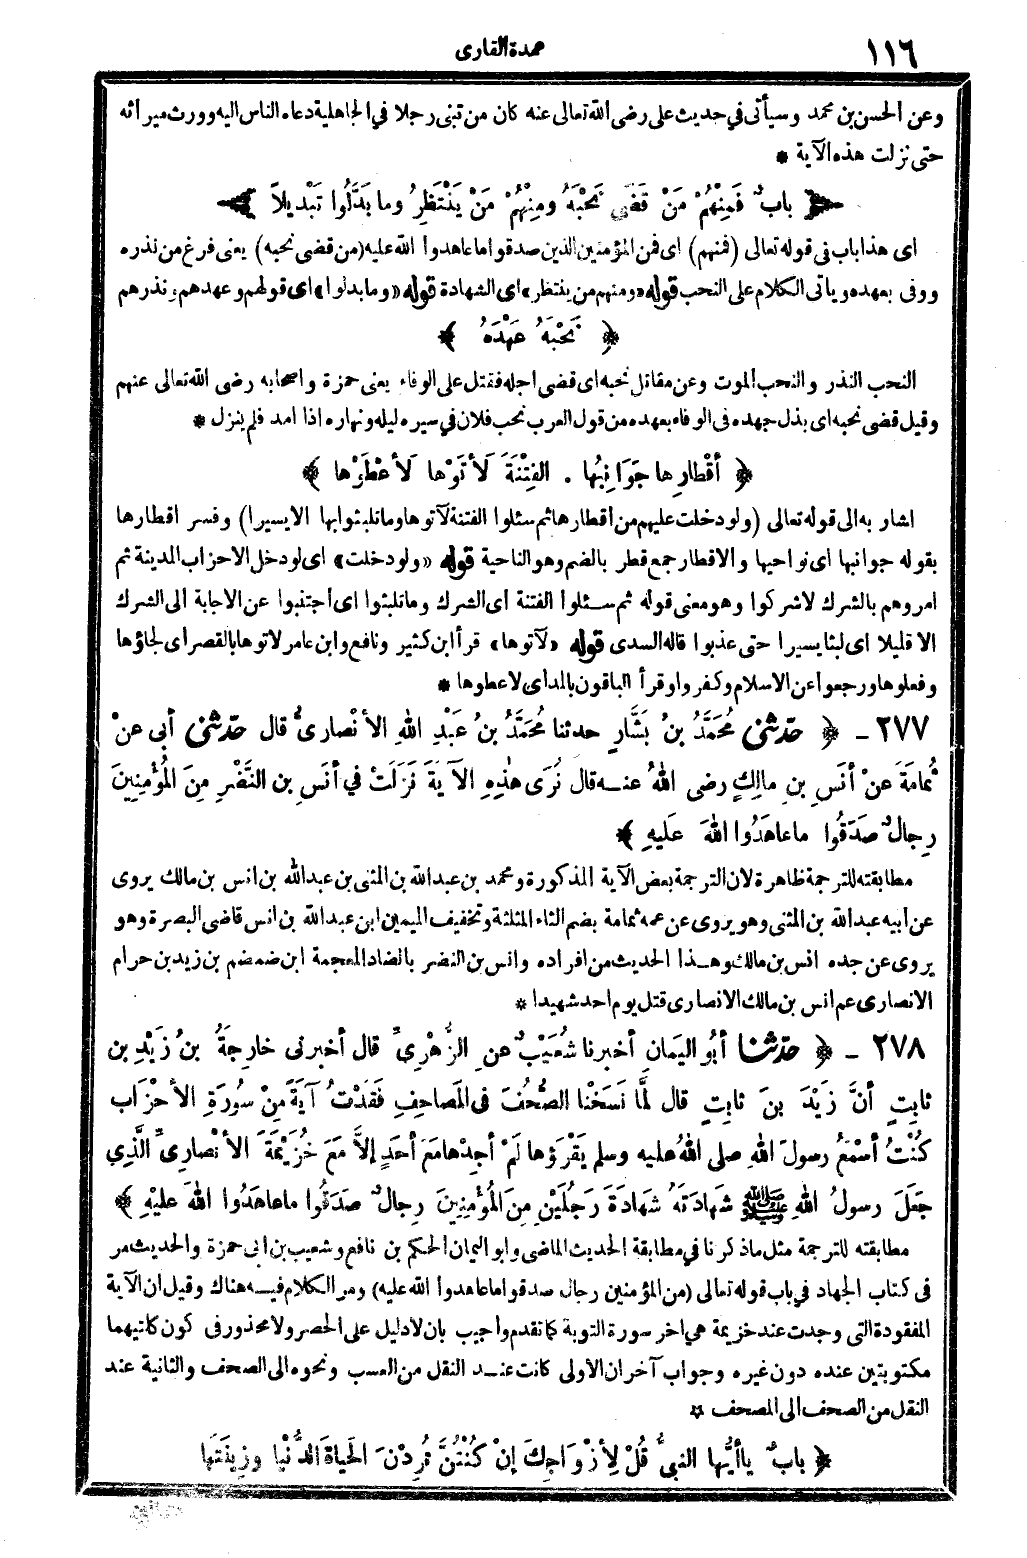 ١١٦
عمدة القارى
وعن الحسن بن محمد وسيأتى في حديث على رضى الله تعالى عنه كان من تبنى رجلا في الجاهلية دعاه الناس اليه وورث ميراثه
حتى نزلت هذه الآية *
﴿ بابٌ فَمِنْهُمْ مَنْ قَضَى نَحْبَهُ ومِنْهُمْ مَنْ يَنْتَظِرُ وما بَدَّلُوا تَبْدِيلاً ﴾
اى هذا باب في قوله تعالى (فمنهم) اى فمن المؤمنين الذين صدقوا ما عاهدوا الله عليه (من قضى نحبه) يعنى فرغ من نذره
ووفى بعهده وياتى الكلام على النحب قوله «ومنهم من ينتظر» اى الشهادة قوله «وما بدلوا» اى قولهم وعهدهم ونذرهم
﴿ نَحْبَهُ عَهْدَهُ ﴾
النحب النذر والنحب الموت وعن مقاتل نحبه اى قضى اجله فقتل على الوفاء يعنى حمزة واصحابه رضى الله تعالى عنهم
وقيل قضى نحبه اى بذل جهده فى الوفاء بعهده من قول العرب نحب فلان في سيره ليله ونهاره اذا امد فلم ينزل *
﴿ أقْطارِها جَوَانِبُها . الفِتْنَةَ لَأتَوْها لَأعْطَوْها ﴾
اشار به الى قوله تعالى (ولو دخلت عليهم من أقطارها ثم سئلوا الفتنة لآتوها وما تلبثوا بها الا يسيرا) وفسر اقطارها
بقوله جوانبها اى نواحيها والاقطار جمع قطر بالضم وهو الناحية قوله «ولو دخلت» اى لو دخل الاحزاب المدينة ثم
امروهم بالشرك لاشركوا وهو معنى قوله ثم سئلوا الفتنة أى الشرك وما تلبثوا اى اجتنبوا عن الاجابة الى الشرك
الا قليلا اى لبثا يسيرا حتى عذبوا قاله السدى قوله «لآتوها» قرأ ابن كثير ونافع وابن عامر لاتوها بالقصر اى لجاؤها
وفعلوها ورجعوا عن الاسلام وكفروا وقرأ الباقون بالمد اى لاعطوها *
٢٧٧ - ﴿ حدّثنى مُحَمَّدُ بنُ بَشَّارٍ حدثنا مُحَمَّدُ بنُ عَبْدِ اللهِ الأنْصارىُّ قال حدّثنى أبى عنْ
ثُمامَةَ عنْ أنَسِ بنِ مالِكٍ رضى اللهُ عنه قال نُرَى هٰذِهِ الآيَةَ نَزَلَتْ فى أنَسِ بنِ النَّضْرِ مِنَ المُؤْمِنِينَ
رِجالٌ صَدَقُوا ما عاهَدُوا اللهَ عَلَيهِ ﴾
مطابقته للترجمة ظاهرة لان الترجمة بعض الآية المذكورة ومحمد بن عبد الله بن المثنى بن عبد الله بن انس بن مالك يروى
عن أبيه عبد الله بن المثنى وهو يروى عن عمه ثمامة بضم الثاء المثلثة وتخفيف الميمين ابن عبد الله بن انس قاضى البصرة وهو
يروى عن جده انس بن مالك وهذا الحديث من افراده وانس بن النضر بالضاد المعجمة ابن ضمضم بن زيد بن حرام
الانصارى عم انس بن مالك الانصارى قتل يوم احد شهيدا *
٢٧٨ - ﴿ حدّثنا أبُو اليَمانِ أخبرنا شُعَيْبٌ عنِ الزُّهْرِىِّ قال أخبرنى خارِجَةُ بنُ زَيْدِ بنِ
ثابِتٍ أنَّ زَيْدَ بنَ ثابِتٍ قال لَمَّا نَسَخْنا الصُّحُفَ فى المَصاحِفِ فَقَدْتُ آيَةً مِنْ سُورَةِ الأحْزَابِ
كُنْتُ أسْمَعُ رسولَ اللهِ صلى اللهُ عليه وسلم يَقْرَؤها لَمْ أجِدْها مَعَ أحَدٍ إلاَّ مَعَ خُزَيْمَةَ الأنْصارىِّ الَّذِى
جَعَلَ رسولُ اللهِ ﷺ شَهادَتَهُ شَهادَةَ رَجُلَيْنِ مِنَ المُؤْمِنِينَ رِجالٌ صَدَقُوا ما عاهَدُوا اللهَ عَلَيْهِ ﴾
مطابقته للترجمة مثل ما ذكرنا في مطابقة الحديث الماضى وابو اليمان الحكم بن نافع وشعيب بن ابى حمزة والحديث مر
فى كتاب الجهاد في باب قوله تعالى (من المؤمنين رجال صدقوا ما عاهدوا الله عليه) ومر الكلام فيه هناك وقيل ان الآية
المفقودة التى وجدت عند خزيمة هى اخر سورة التوبة كما تقدم وأجيب بان لا دليل على الحصر ولا محذور فى كون كلتيهما
مكتوبتين عنده دون غيره وجواب آخر ان الاولى كانت عند النقل من العسب ونحوه الى الصحف والثانية عند
النقل من الصحف الى المصحف *
﴿ بابٌ يا أيُّها النبىُّ قُلْ لِأزْوَاجِكَ إنْ كُنْتُنَّ تُرِدْنَ الحَياةَ الدُّنْيا وزِينَتَها